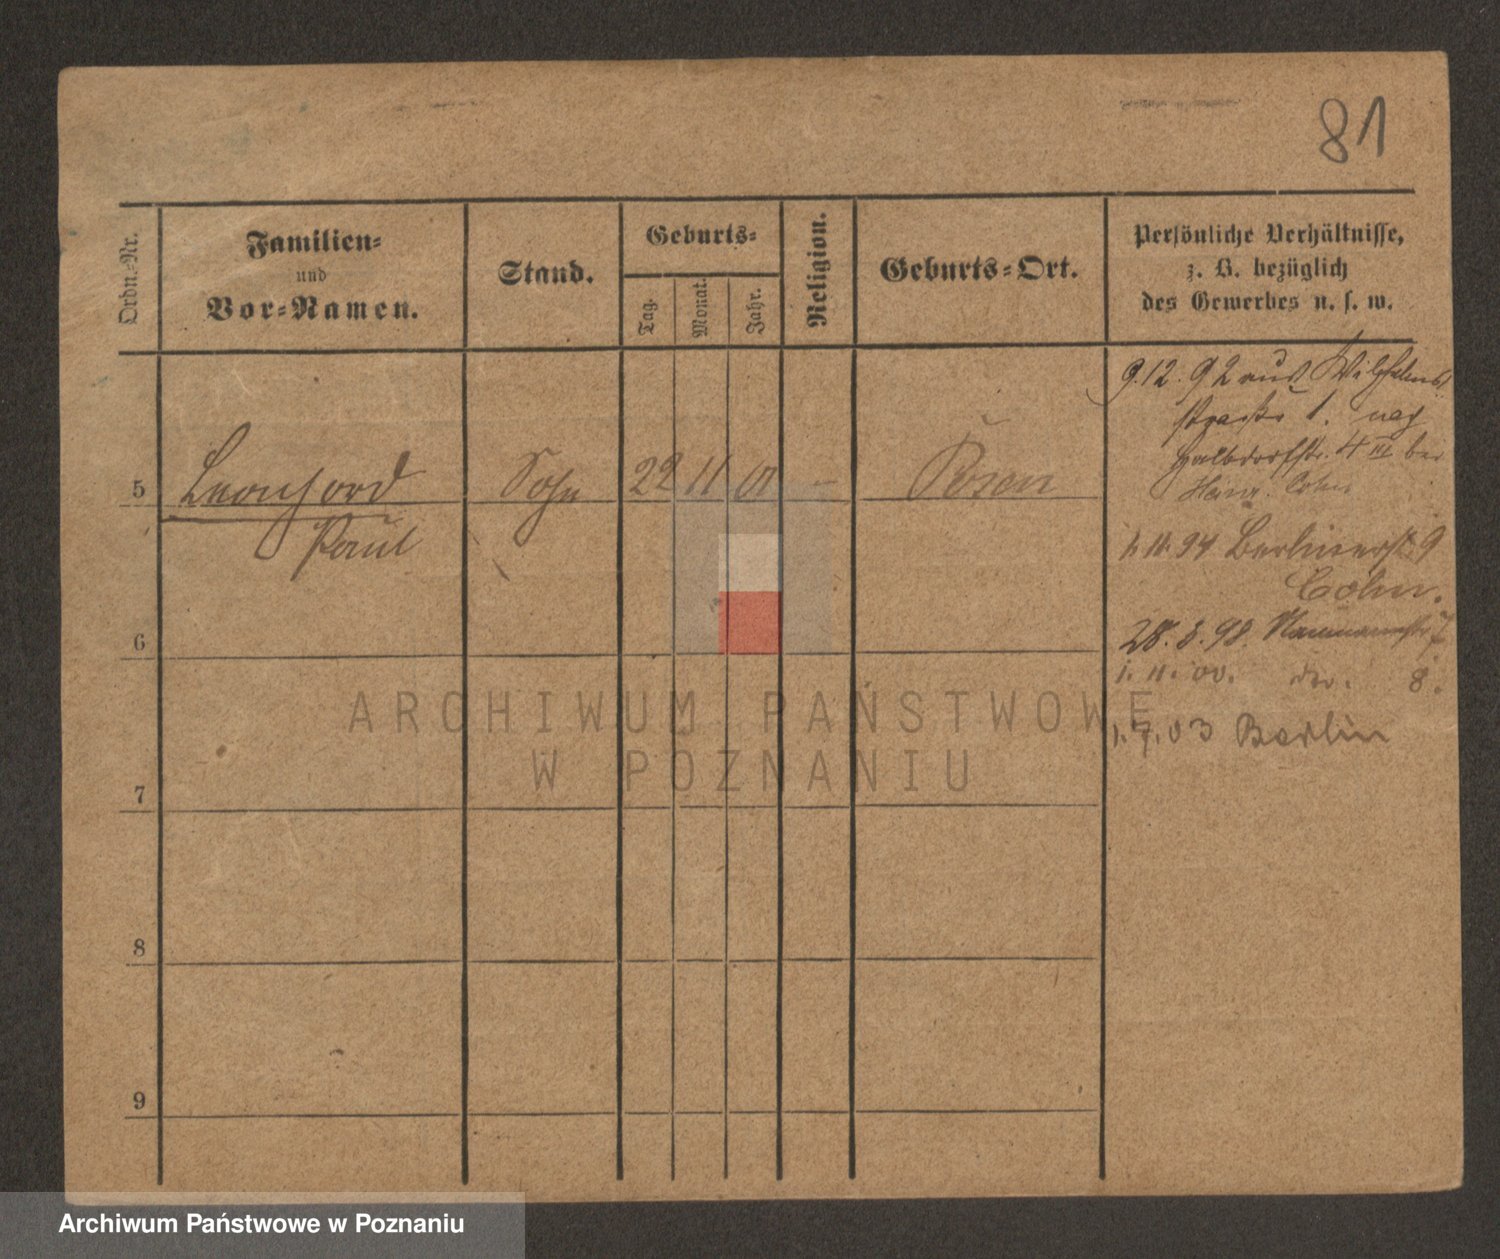 81
Ordn.-Nr.
Familien-
und
Vor-Namen.
Stand.
Geburts-
Tag.
Monat.
Jahr.
Religion.
Geburts-Ort.
Persönliche Verhältnisse,
z. B. bezüglich
des Gewerbes u. s. w.
5
Sohn
22 11 01 -
Posen
Paul
9.12.92 aus Wilhelms
straße 1. nach
Halbdorfstr. 4 III bei
Heinr. Cohn
1.11.94 Berlinerstr. 9
Cohn.
28.3.98. Naumannstr. 7
1.11.00. do. 8.
1.7.03 Berlin
6
7
8
9
ARCHIWUM PAŃSTWOWE
W POZNANIU
Archiwum Państwowe w Poznaniu